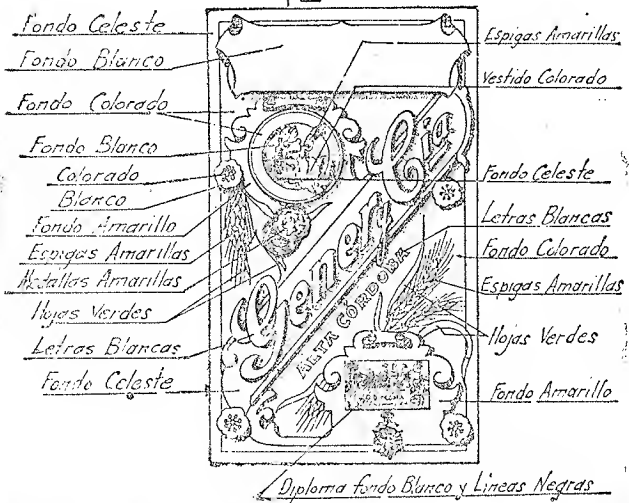 Fondo Celeste
Fondo Blanco
Fondo Colorado
Fondo Blanco
Colorado
Blanco
Fondo Amarillo
Espigas Amarillas
Medallas Amarillas
Hojas Verdes
Letras Blancas
Fondo Celeste
Genety Cia
ALTA CÓRDOBA
Espigas Amarillas
Vestido Colorado
Fondo Celeste
Letras Blancas
Fondo Colorado
Espigas Amarillas
Hojas Verdes
Fondo Amarillo
Diploma fondo Blanco y Lineas Negras